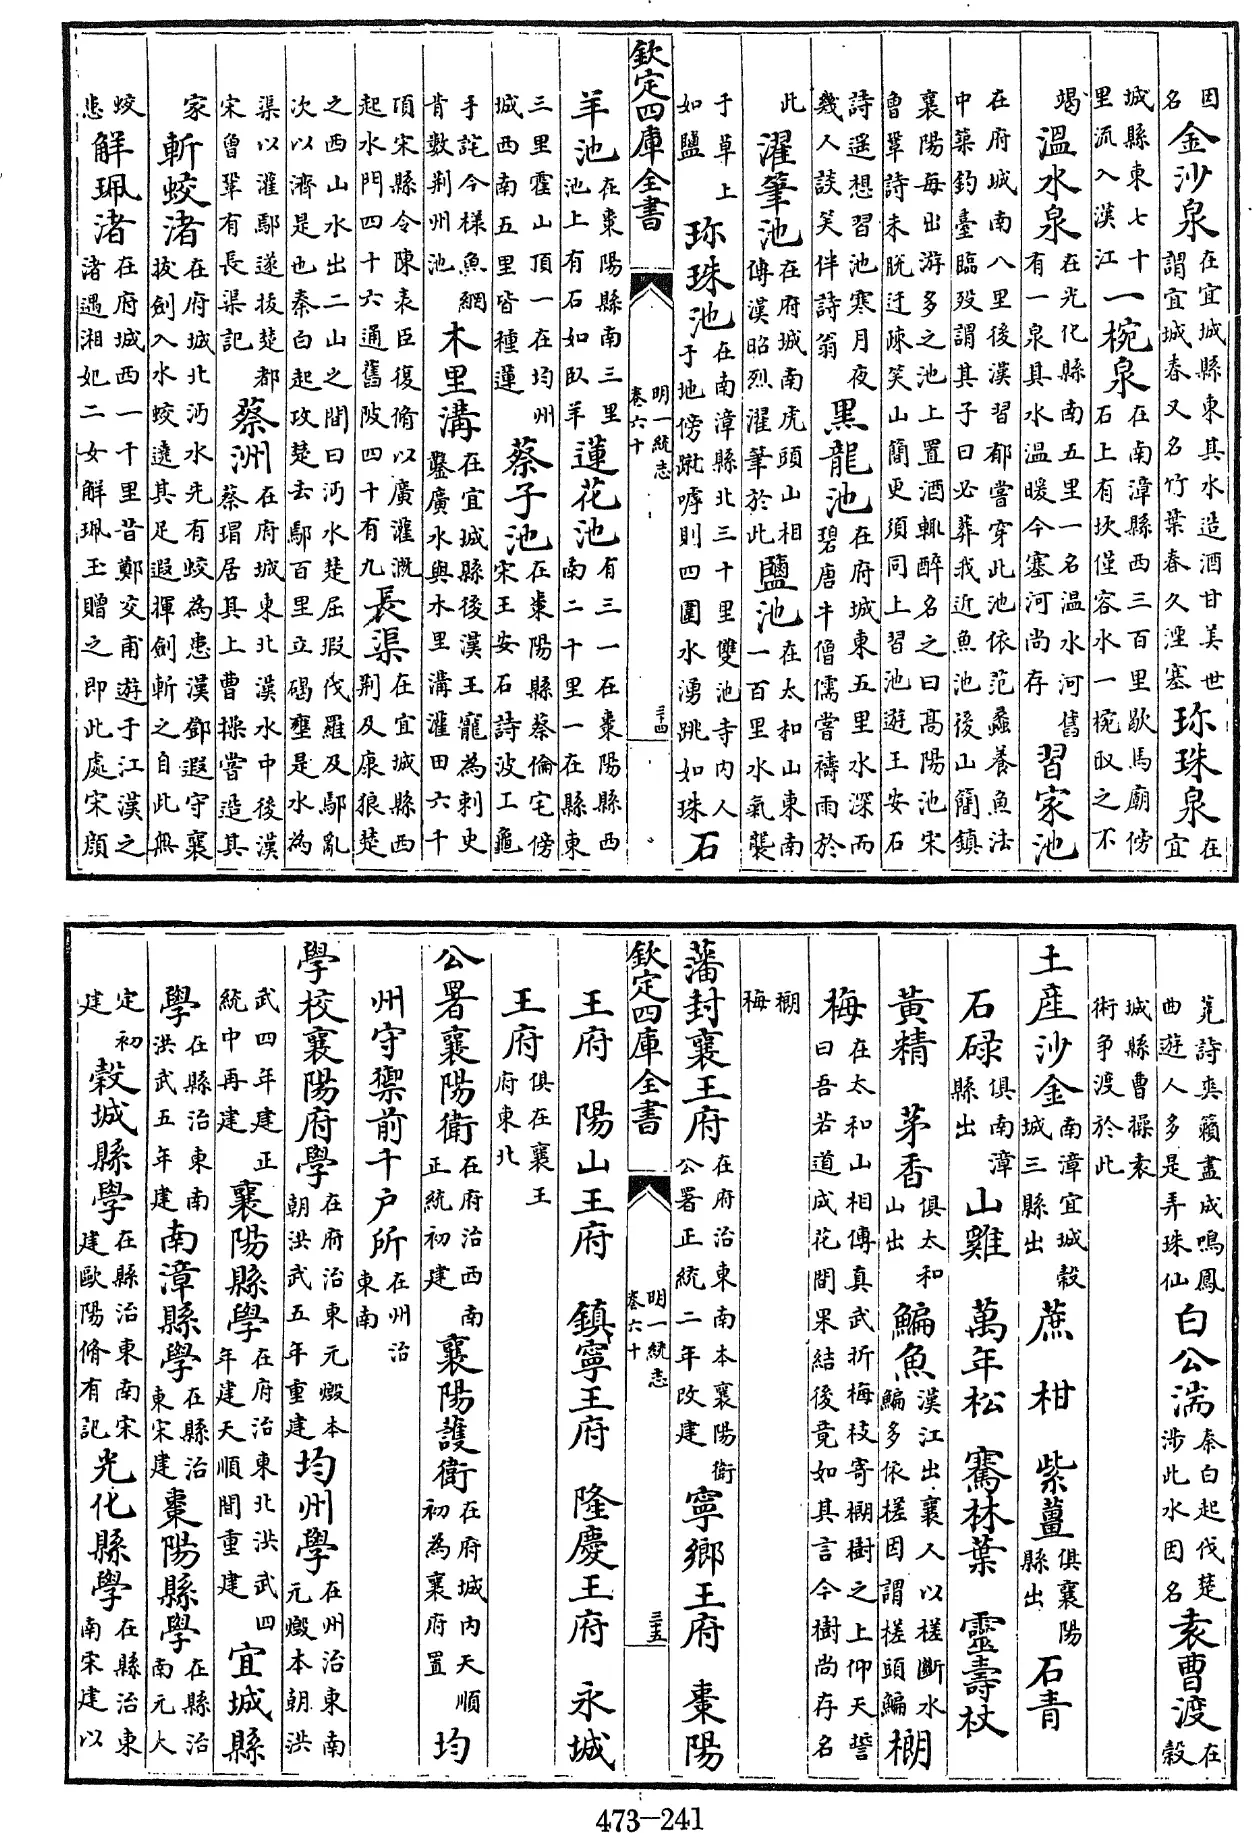 因名金沙泉在宜城縣東其水造酒甘美世謂宜城春又名竹葉春久湮塞珍珠泉在宜
城縣東七十里流入漢江一椀泉在南漳縣西三百里歇馬廟傍石上有坎僅容水一椀取之不
竭溫水泉在光化縣南五里一名温水河舊有一泉其水溫暖今塞河尚存習家池
在府城南八里後漢習郁嘗穿此池依范蠡養魚法中築釣臺臨歿謂其子曰必葬我近魚池後山簡鎮
襄陽每出游多之池上置酒輒醉名之曰髙陽池宋曾鞏詩未脱迂疎笑山簡更須同上習池遊王安石
詩遥想習池寒月夜幾人談笑伴詩翁黒龍池在府城東五里水深而碧唐牛僧儒嘗禱雨於
此濯筆池在府城南虎頭山相傳漢昭烈濯筆於此鹽池在太和山東南一百里水氣襲
于草上如鹽珍珠池在南漳縣北三十里雙池寺内人于地傍蹴則四圍水湧跳如珠石
欽定四庫全書 明一統志 卷六十 三十四
羊池在棗陽縣南三里池上有石如臥羊蓮花池有三一在棗陽縣西南二十里一在縣東
三里霍山頂一在均州城西南五里皆種蓮蔡子池在棗陽縣蔡倫宅傍宋王安石詩波工龜
手詫今様魚網肯數荆州池木里溝在宜城縣後漢王寵為刺史鑿廣水與木里溝灌田六千
頃宋縣令陳表臣復脩以廣灌溉起水門四十六通舊陂四十有九長渠在宜城縣西荆及康狼楚
之西山水出二山之間曰沔水楚屈瑕伐羅及鄢亂次以濟是也秦白起攻楚去鄢百里立碣壅是水為
渠以灌鄢遂拔楚都宋曾鞏有長渠記蔡洲在府城東北漢水中後漢蔡瑁居其上曹操嘗造其
家斬蛟渚在府城北沔水先有蛟為患漢鄧遐守襄拔劍入水蛟遶其足遐揮劍斬之自此無
蛟患解珮渚在府城西一十里昔鄭交甫遊于江漢之渚遇湘妃二女解珮玉贈之即此處宋顔
莞詩爽籟盡成鳴鳳曲遊人多是弄珠仙白公湍秦白起伐楚涉此水因名袁曹渡在穀
城縣曹操袁術爭渡於此
土產沙金南漳宜城穀城三縣出蔗 柑 紫薑俱襄陽縣出石青
石碌俱南漳縣出山雞 萬年松 騫林葉 靈壽杖
黃精 茅香俱太和山出鯿魚漢江出襄人以槎斷水鯿多依槎因謂槎頭鯿榔
梅在太和山相傳真武折梅枝寄榔樹之上仰天誓曰吾若道成花開果結後竟如其言今樹尚存名
榔梅
藩封襄王府在府治東南本襄陽衛公署正統二年改建寧鄉王府 棗陽
欽定四庫全書 明一統志 卷六十 三十五
王府 陽山王府 鎮寧王府 隆慶王府 永城
王府俱在襄王府東北
公署襄陽衛在府治西南正統初建襄陽護衛在府城内天順初為襄府置均
州守禦前千户所在州治東南
學校襄陽府學在府治東元燬本朝洪武五年重建均州學在州治東南元燬本朝洪
武四年建正統中再建襄陽縣學在府治東北洪武四年建天順間重建宜城縣
學在縣治東南洪武五年建南漳縣學在縣治東宋建棗陽縣學在縣治南元大
定初建穀城縣學在縣治東南宋建歐陽脩有記光化縣學在縣治東南宋建以
473—241